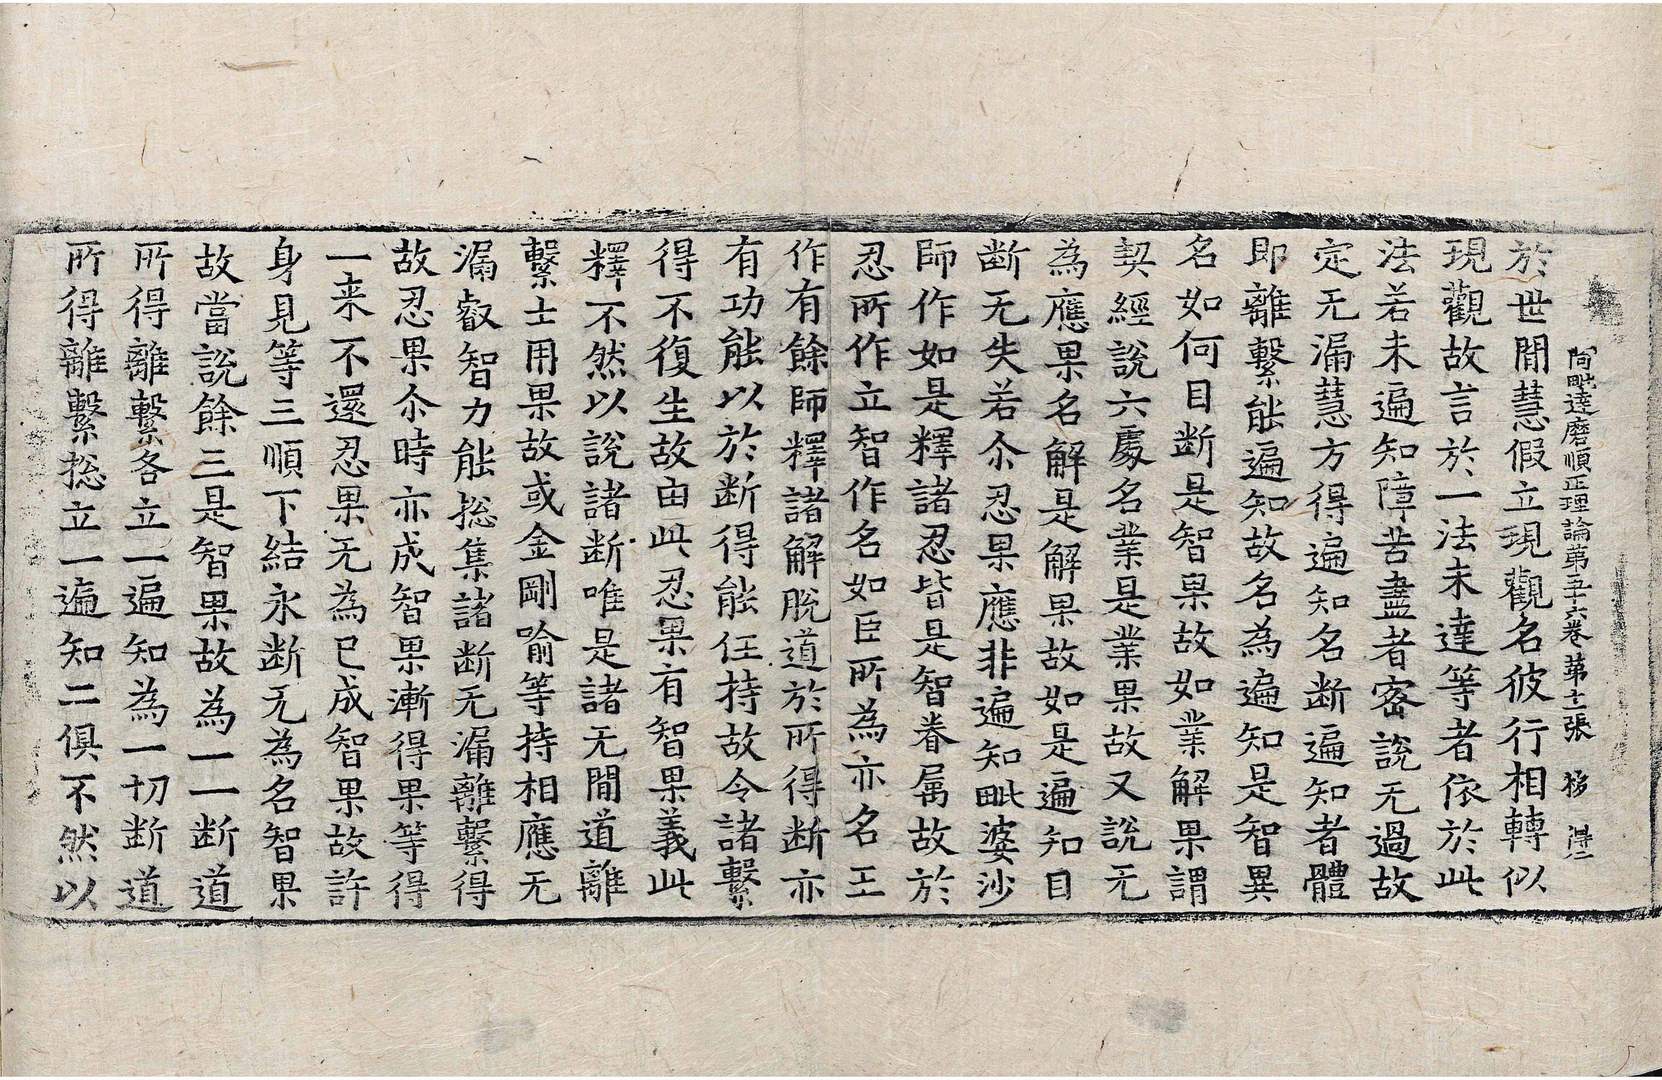 阿毗達磨順正理論第五十六卷 第十二張 移
於世閒慧假立現觀名彼行相轉似
現觀故言於一法未達等者依於此
法若未遍知障苦盡者密說无過故
定无漏慧方得遍知名断遍知者體
即離繫能遍知故名為遍知是智異
名如何目断是智果故如業解果謂
契經說六處名業是業果故又說无
為應果名解是解果故如是遍知目
断无失若尒忍果應非遍知毗婆沙
師作如是釋諸忍皆是智眷属故於
忍所作立智作名如臣所為亦名王
作有餘師釋諸解脫道於所得断亦
有功能以於断得能任持故令諸繫
得不復生故由此忍果有智果義此
釋不然以說諸断唯是諸无閒道離
繫士用果故或金剛喻等持相應无
漏叡智力能捴集諸断无漏離繫得
故忍果尒時亦成智果漸得果等得
一来不還忍果无為已成智果故許
身見等三順下結永断无為名智果
故當說餘三是智果故為一一断道
所得離繫各立一遍知為一切断道
所得離繫捴立一遍知二俱不然以